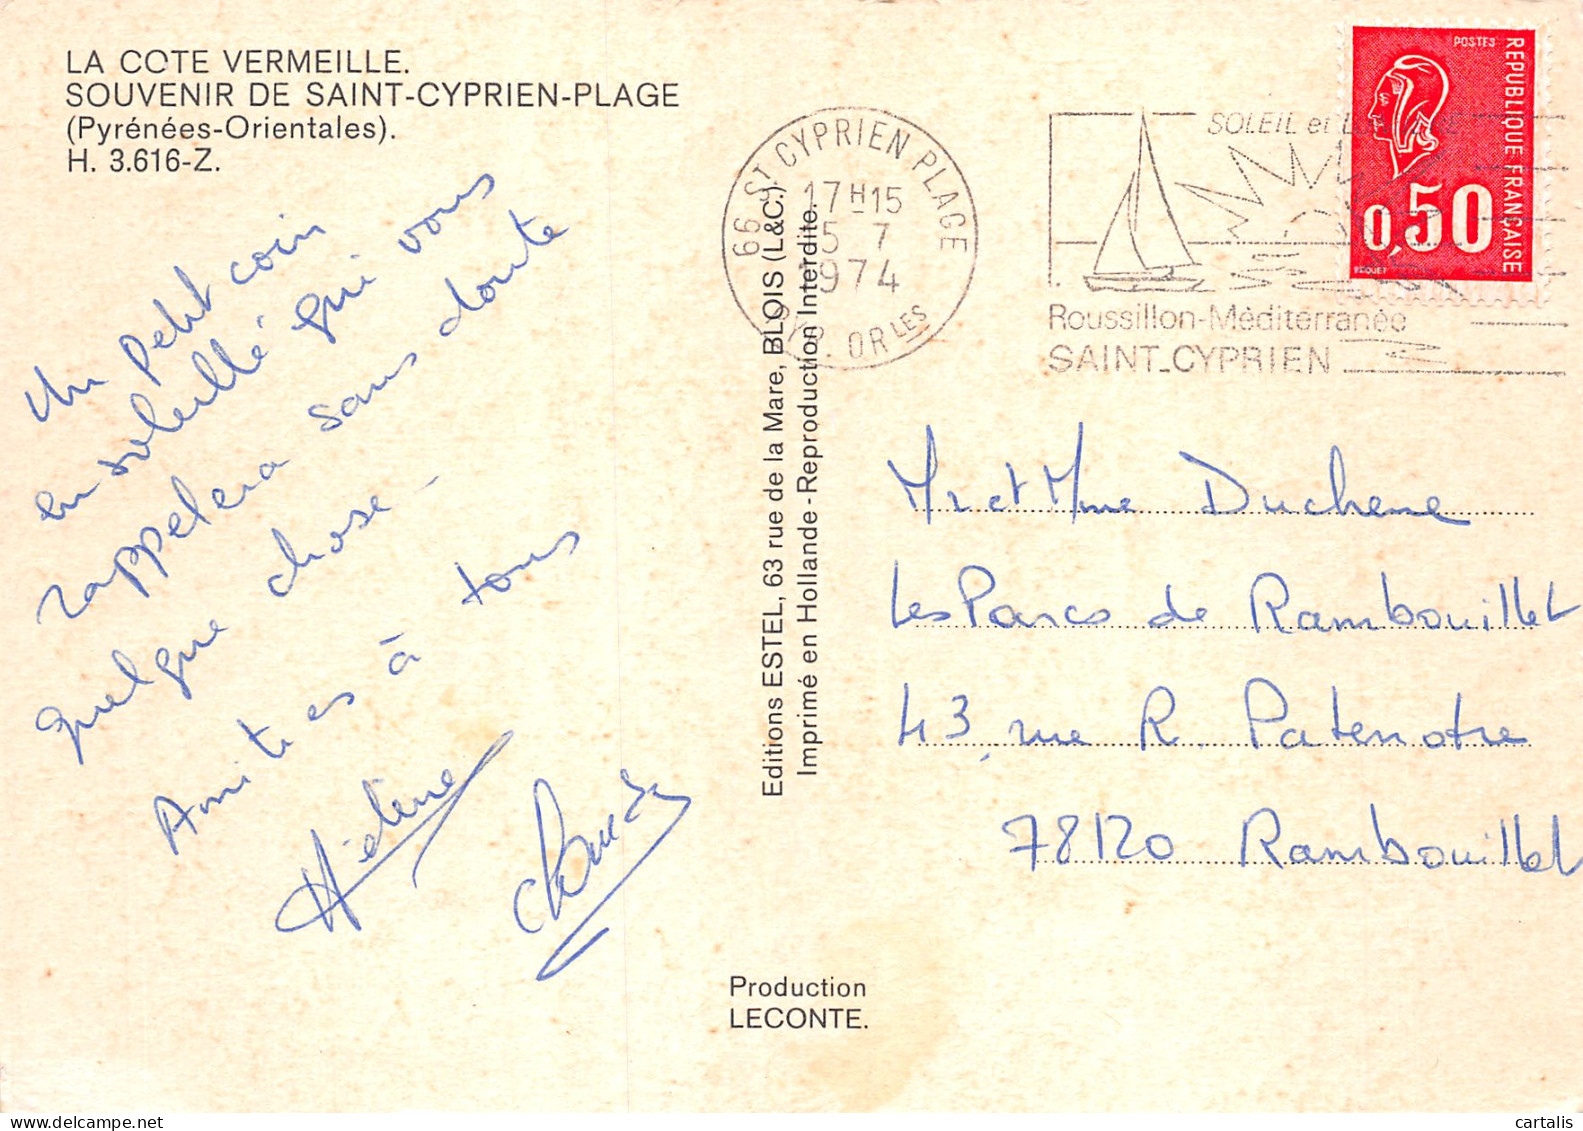 LA COTE VERMEILLE.
SOUVENIR DE SAINT-CYPRIEN-PLAGE
(Pyrénées-Orientales).
H. 3.616-Z.
Un petit coin
ensoleillé qui vous
rappelera sans doute
quelque chose -
Amitiés à tous
Hélène
Editions ESTEL, 63 rue de la Mare, BLOIS (L&C.)
Imprimé en Hollande - Reproduction Interdite.
Production
LECONTE.
66 ST CYPRIEN PLAGE
17H15
5 7
1974
PYR. ORLES
SOLEIL et
Roussillon-Méditerranée
SAINT-CYPRIEN
POSTES
REPUBLIQUE FRANÇAISE
0,50
BEQUET
Mr et Mme Duchene
Les Parcs de Rambouillet
43, rue R. Patenotre
78120 Rambouillet
cartalis